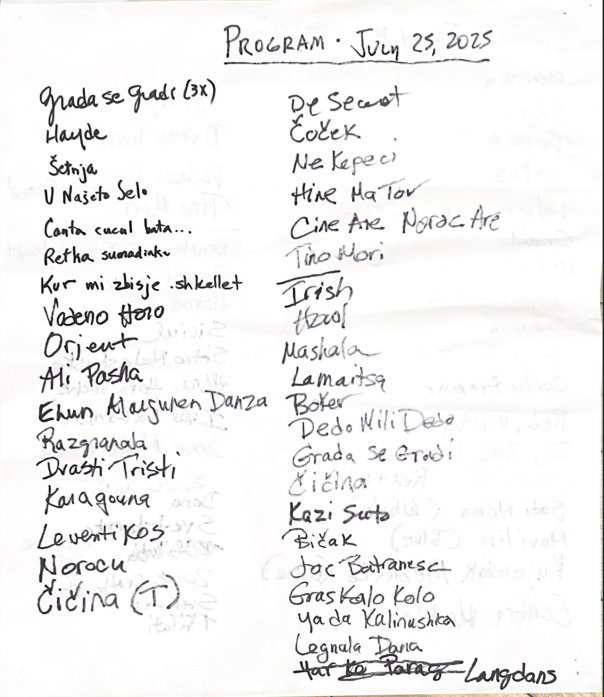 PROGRAM · JULY 25, 2025
Grada se gradi (3x)
Hayde
Šetnja
U Našeto Selo
Canta cucul bata...
Retka sumadinka
Kur mi zbisje shkellet
Vodeno Horo
Orient
Ali Pasha
Ehun Danza
Razgranala
Drasti Tristi
Karagouna
Leventikos
Norocu
Čičina (T)
De Secerat
Čoček
Ne Kepeci
Hine Ma Tov
Cine Are Noroc Are
Tino Mori
Irish
Hora
Mashala
Lamaitsa
Boker
Dedo Mili Dedo
Grada Se Gradi
Čičina
Kazi Suto
Bičak
Joc Batranesc
Gras Kalo Kolo
Yada Kalinushka
Legnala Dana
Langdans